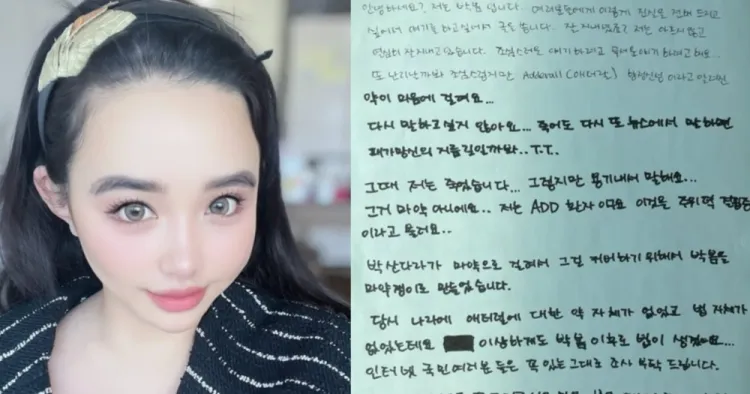 안녕하세요? 저는 박봄 입니다. 여러분들에게 이렇게 진심을 전해 드리고
싶어서 얘기를 하고싶어서 글을 씁니다. 잘 지내셨죠? 저는 아프지 않고
열심히 잘 지내고 있습니다. 얘기 하려고 해요..
또 조심스럽지만 Adderall (애더럴) 이라고 알려진
약이 마음에 걸려요...
다시 말하고 싶지 않아요... 죽어도 다시 또 뉴스에서 말하면
패가망신의 지름길일까봐..T.T.
그때 저는 죽었습니다... 그렇지만 용기내서 말해요...
그거 마약 아니에요... 저는 ADD 환자 이고요 이것은 주위력 결핍증
이라고 불러요..
박산다라가 마약으로 걸려서 그걸 커버하기 위해서 박봄을
마약쟁이로 만들었습니다.
당시 나라에 애더럴에 대한 약 자체가 없었고 법 자체가
없었는데요 이상하게도 박봄 이후로 법이 생겼어요...
인터넷 국민 여러분 들은 또 있는 그대로 조사 부탁 드립니다.